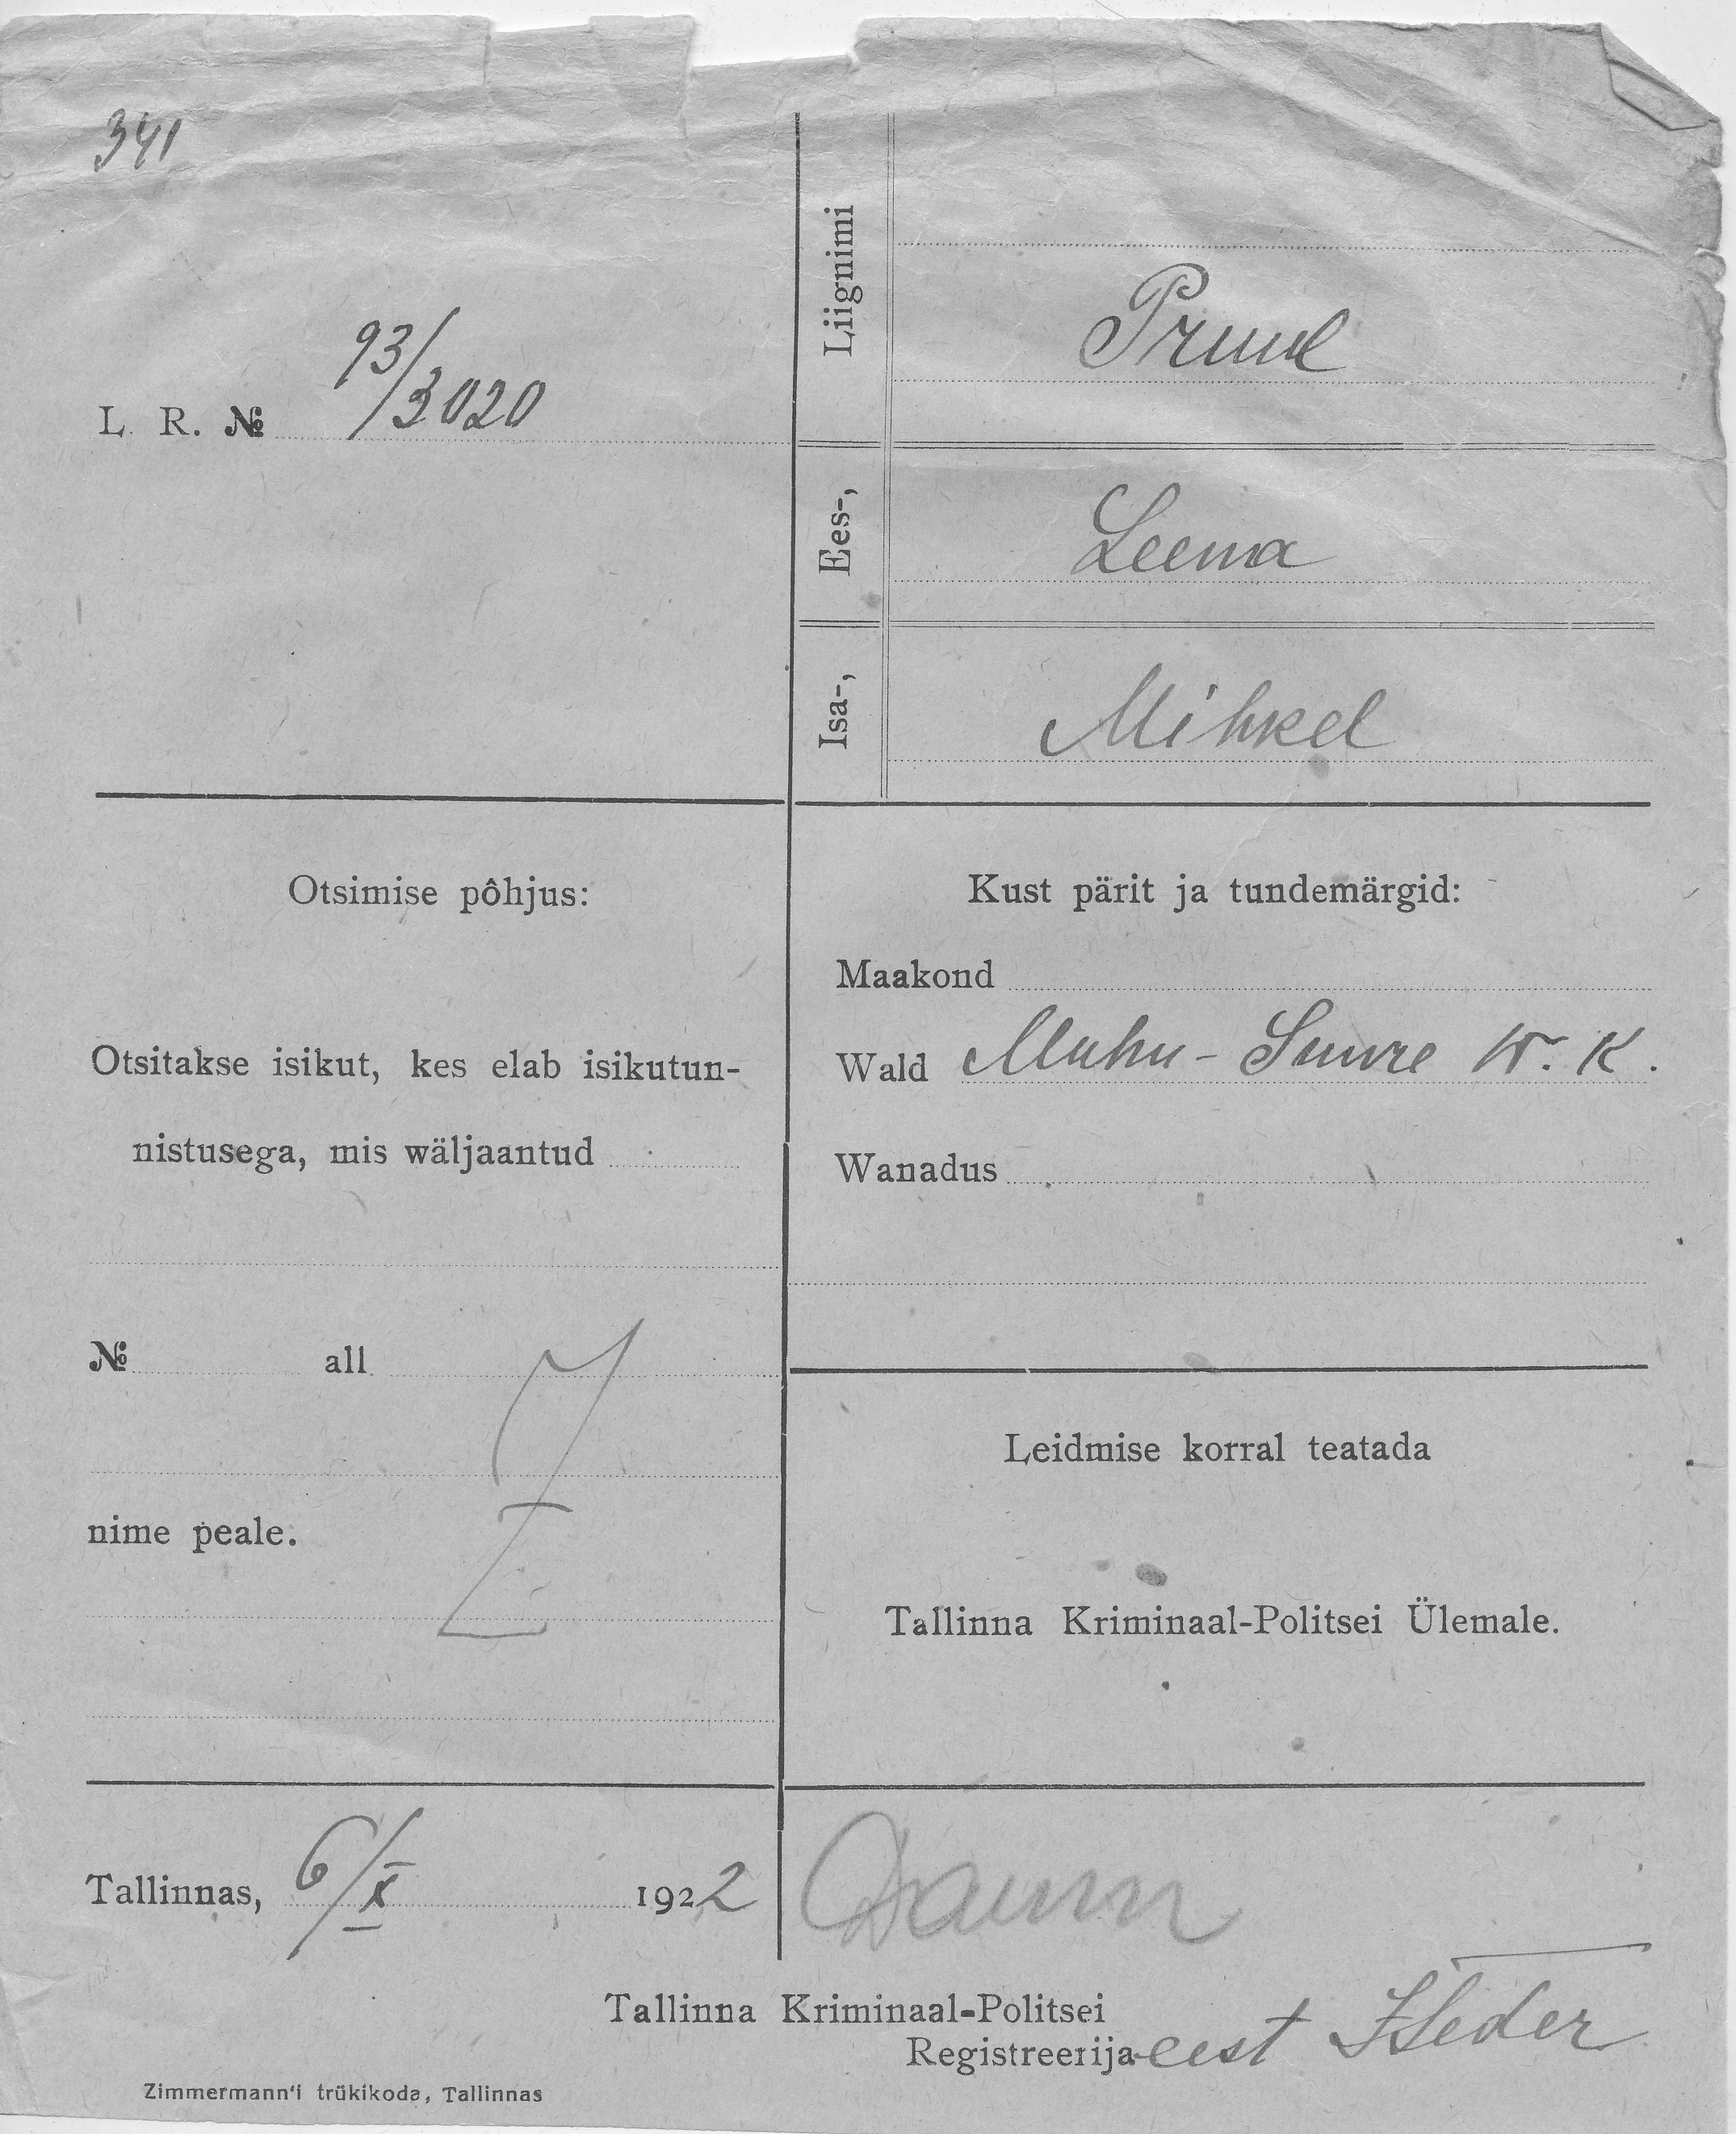 341
L. R. № 93/3020
Liignimi
Pruul
Ees-,
Leena
Isa-,
Mihkel
Otsimise põhjus:
Otsitakse isikut, kes elab isikutun-
nistusega, mis wäljaantud
№ all
nime peale.
Kust pärit ja tundemärgid:
Maakond
Wald Muhu-Suure W. K.
Wanadus
Leidmise korral teatada
Tallinna Kriminaal-Politsei Ülemale.
Tallinnas, 6/X 1922
Tallinna Kriminaal-Politsei
Registreerija eest
Zimmermann'i trükikoda, Tallinnas